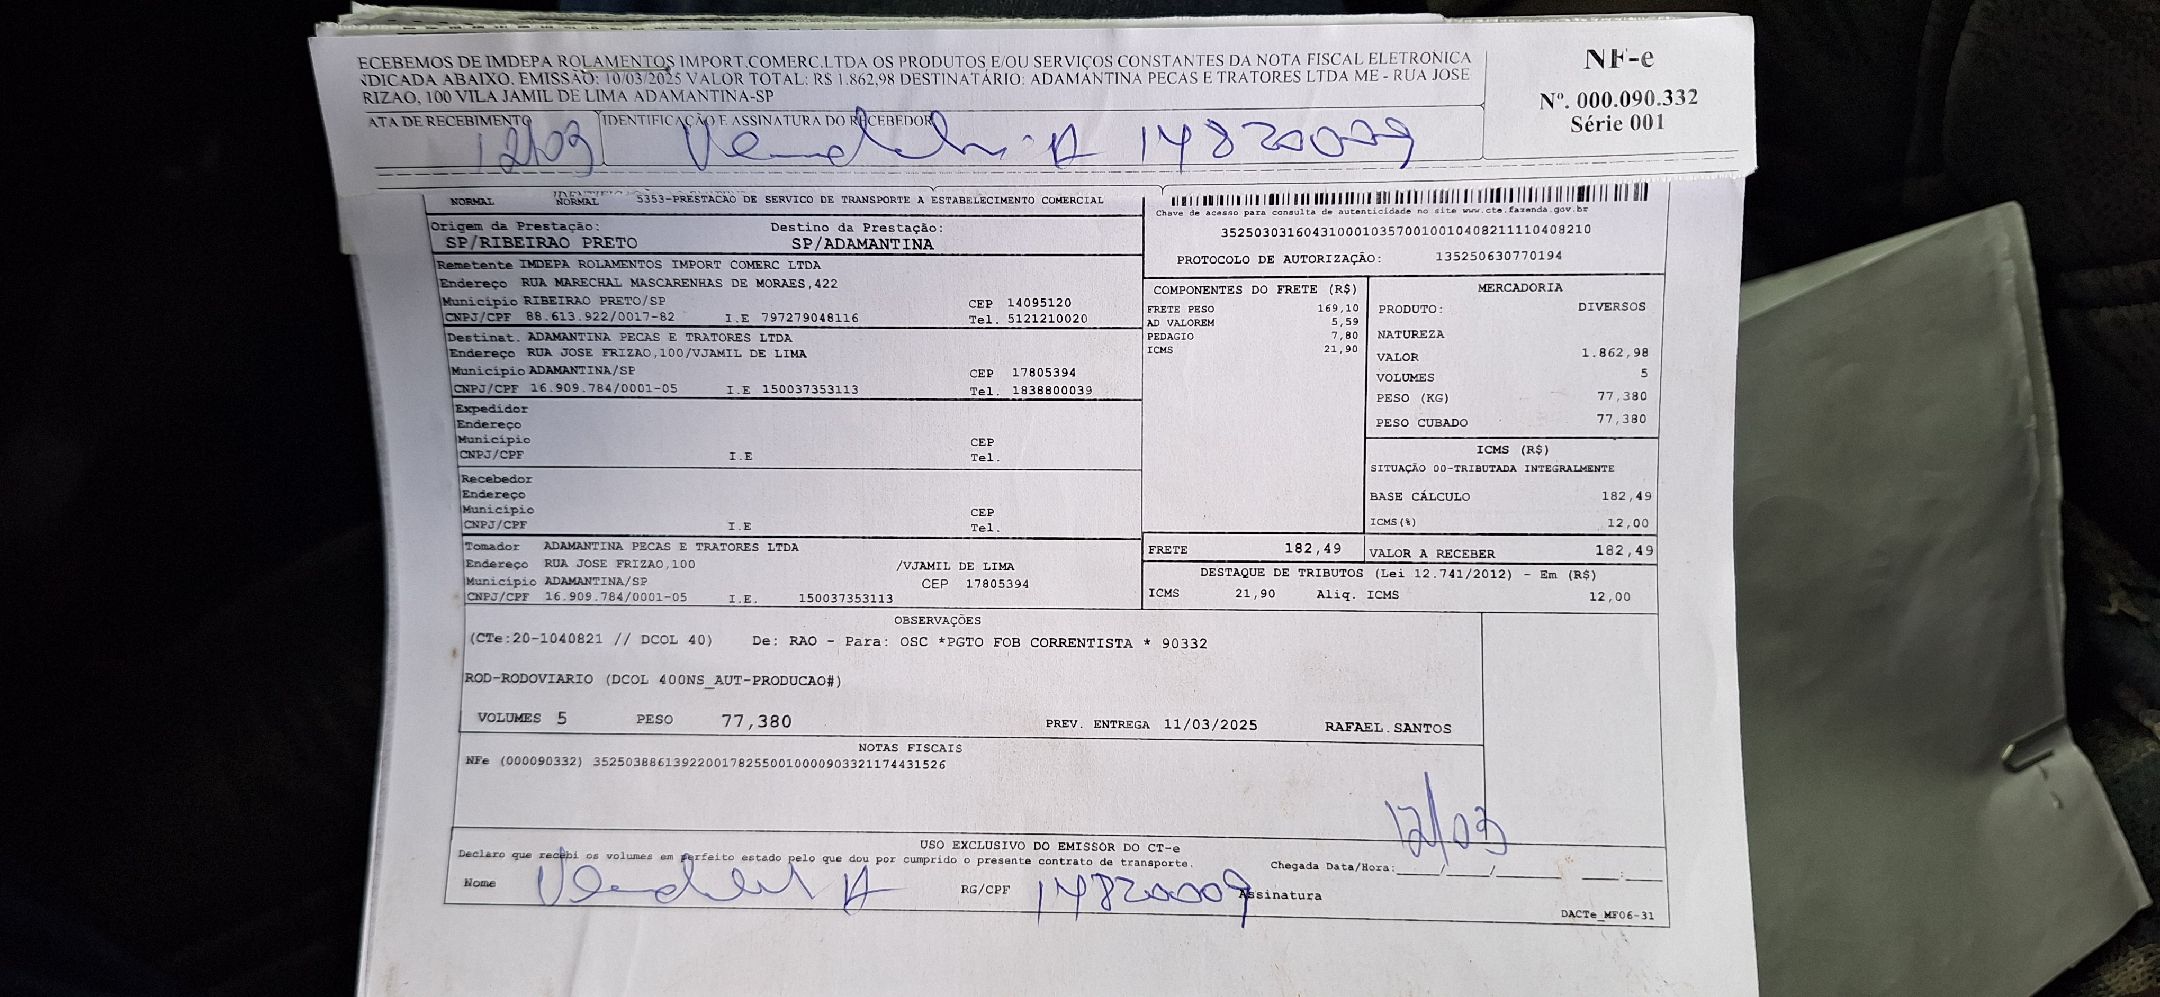 ECEBEMOS DE IMDEPA ROLAMENTOS IMPORT.COMERC.LTDA OS PRODUTOS E/OU SERVIÇOS CONSTANTES DA NOTA FISCAL ELETRONICA
NDICADA ABAIXO. EMISSÃO: 10/03/2025 VALOR TOTAL: R$ 1.862,98 DESTINATÁRIO: ADAMANTINA PECAS E TRATORES LTDA ME - RUA JOSE
RIZAO, 100 VILA JAMIL DE LIMA ADAMANTINA-SP
NF-e
Nº. 000.090.332
Série 001
ATA DE RECEBIMENTO
IDENTIFICAÇÃO E ASSINATURA DO RECEBEDOR
12/03
14820009
NORMAL NORMAL 5353-PRESTACAO DE SERVICO DE TRANSPORTE A ESTABELECIMENTO COMERCIAL
Origem da Prestação: Destino da Prestação:
SP/RIBEIRAO PRETO SP/ADAMANTINA
Remetente IMDEPA ROLAMENTOS IMPORT COMERC LTDA
Endereço RUA MARECHAL MASCARENHAS DE MORAES,422
Município RIBEIRAO PRETO/SP CEP 14095120
CNPJ/CPF 88.613.922/0017-82 I.E 797279048116 Tel. 5121210020
Destinat. ADAMANTINA PECAS E TRATORES LTDA
Endereço RUA JOSE FRIZAO,100/VJAMIL DE LIMA
Município ADAMANTINA/SP CEP 17805394
CNPJ/CPF 16.909.784/0001-05 I.E 150037353113 Tel. 1838800039
Expedidor
Endereço
Município CEP
CNPJ/CPF I.E Tel.
Recebedor
Endereço
Município CEP
CNPJ/CPF I.E Tel.
Tomador ADAMANTINA PECAS E TRATORES LTDA
Endereço RUA JOSE FRIZAO,100 /VJAMIL DE LIMA
Município ADAMANTINA/SP CEP 17805394
CNPJ/CPF 16.909.784/0001-05 I.E. 150037353113
Chave de acesso para consulta de autenticidade no site www.cte.fazenda.gov.br
35250303160431000103570010010408211110408210
PROTOCOLO DE AUTORIZAÇÃO: 135250630770194
COMPONENTES DO FRETE (R$)
FRETE PESO 169,10
AD VALOREM 5,59
PEDAGIO 7,80
ICMS 21,90
MERCADORIA
PRODUTO: DIVERSOS
NATUREZA
VALOR 1.862,98
VOLUMES 5
PESO (KG) 77,380
PESO CUBADO 77,380
ICMS (R$)
SITUAÇÃO 00-TRIBUTADA INTEGRALMENTE
BASE CÁLCULO 182,49
ICMS(%) 12,00
FRETE 182,49 VALOR A RECEBER 182,49
DESTAQUE DE TRIBUTOS (Lei 12.741/2012) - Em (R$)
ICMS 21,90 Aliq. ICMS 12,00
OBSERVAÇÕES
(CTe:20-1040821 // DCOL 40) De: RAO - Para: OSC *PGTO FOB CORRENTISTA * 90332
ROD-RODOVIARIO (DCOL 400NS_AUT-PRODUCAO#)
VOLUMES 5 PESO 77,380 PREV. ENTREGA 11/03/2025 RAFAEL.SANTOS
NOTAS FISCAIS
NFe (000090332) 35250388613922001782550010000903321174431526
12/03
USO EXCLUSIVO DO EMISSOR DO CT-e
Declaro que recebi os volumes em perfeito estado pelo que dou por cumprido o presente contrato de transporte. Chegada Data/Hora:____/____/______ ___:___
Nome RG/CPF 14820009 Assinatura
DACTe_MF06-31